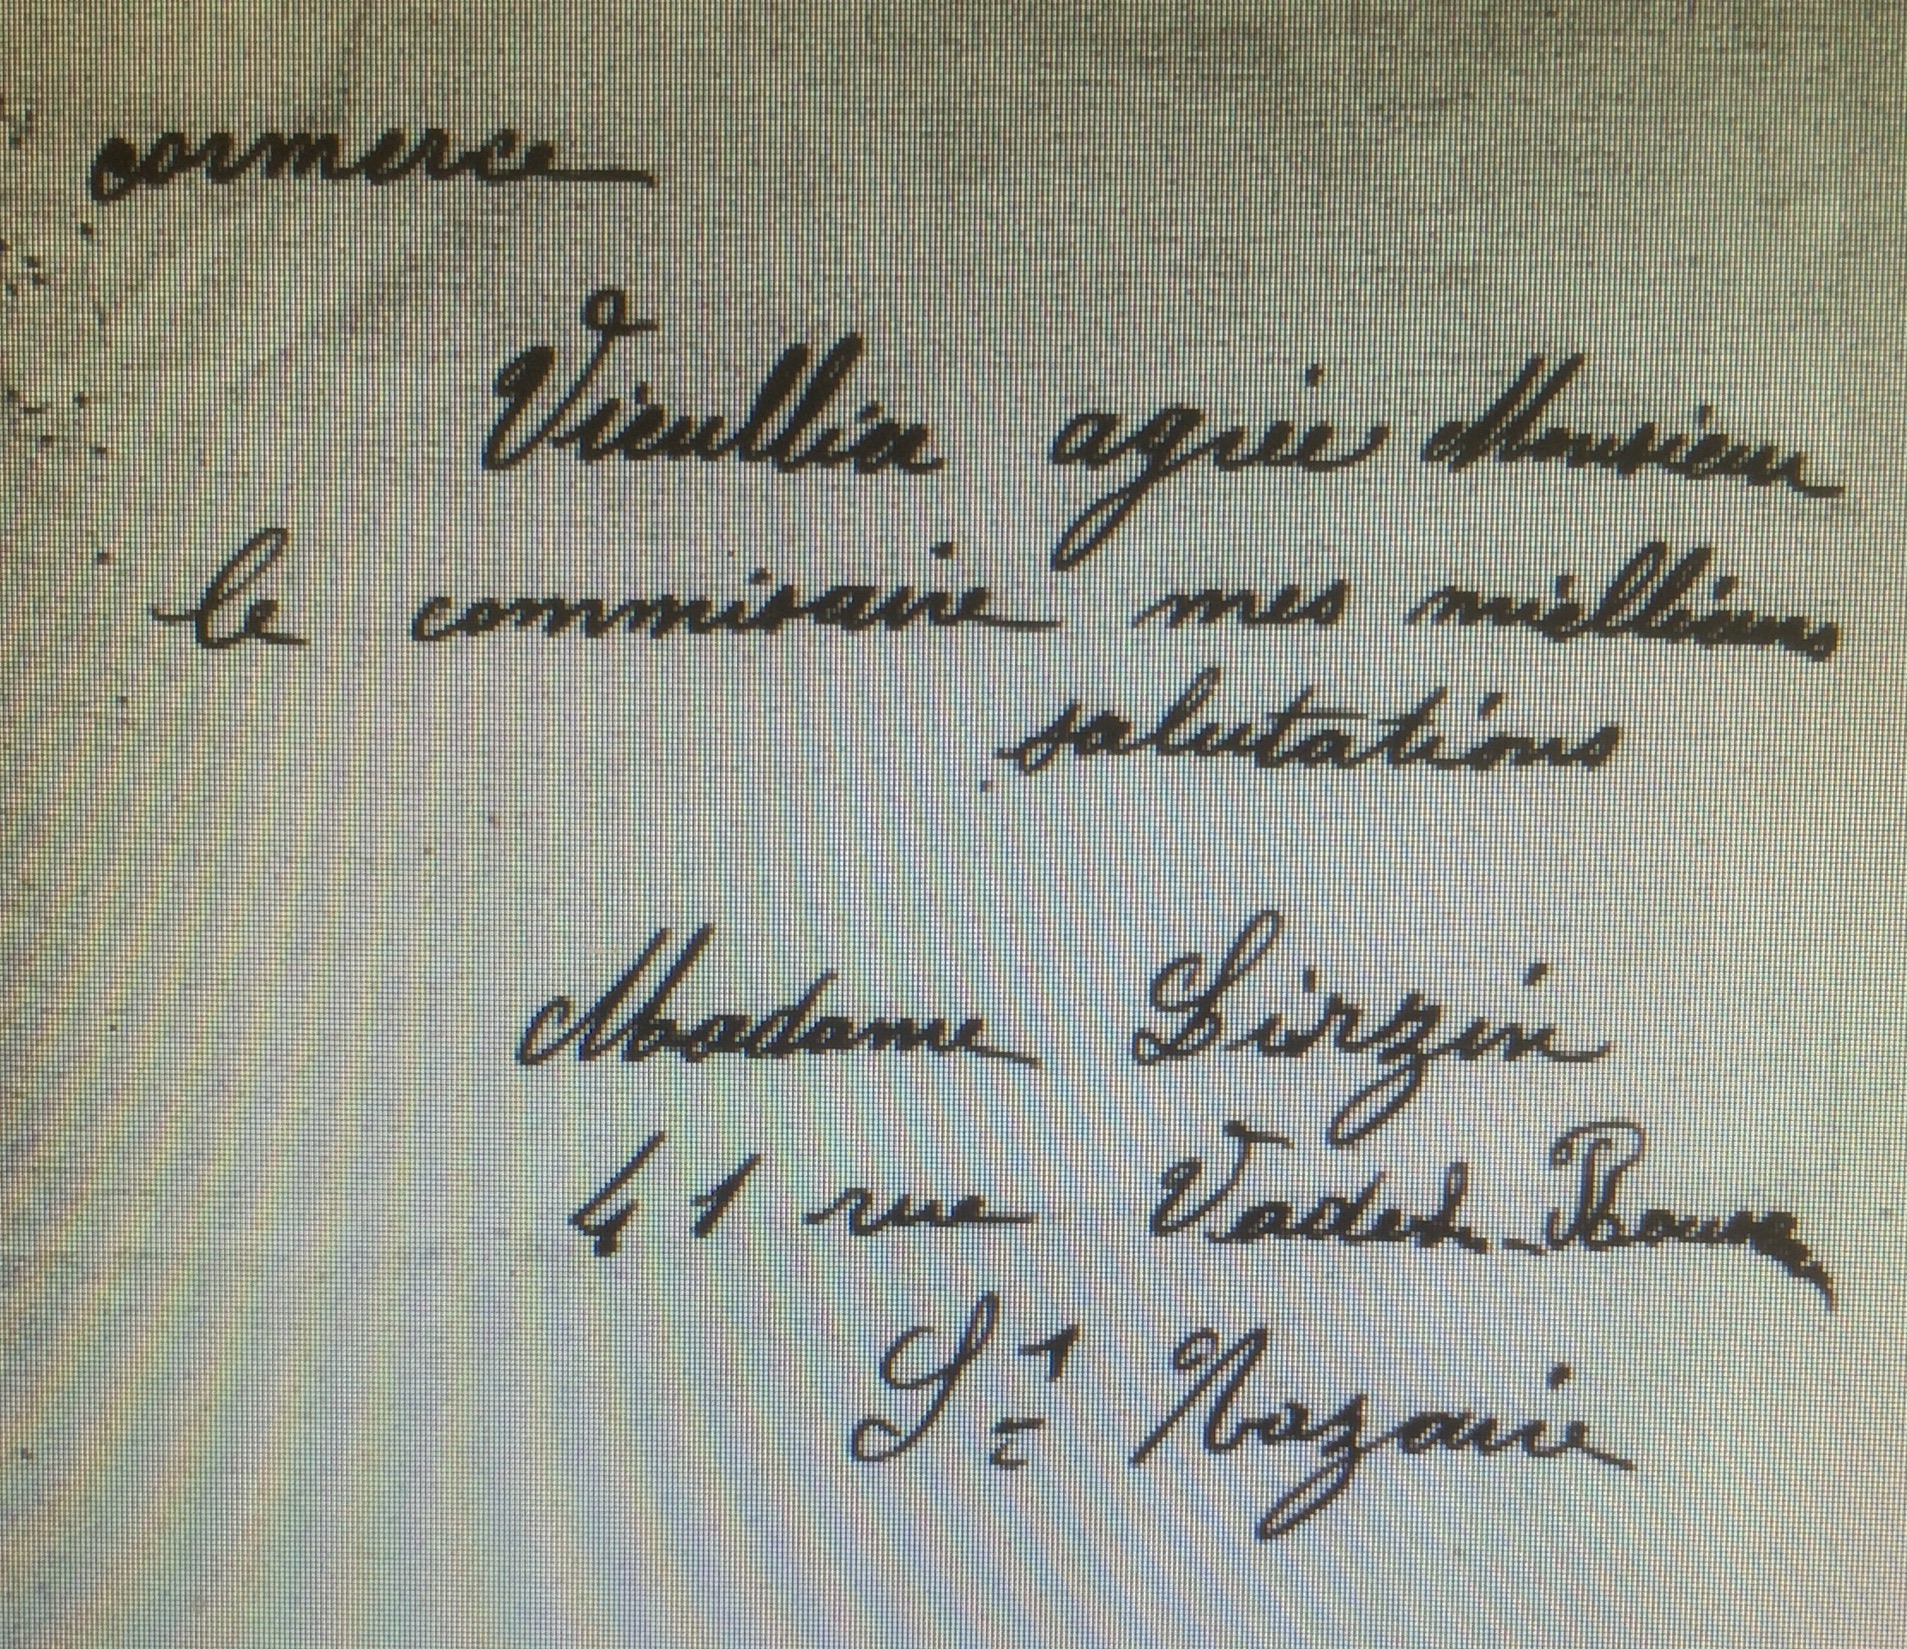 commerce
Vieullier agrèer Monsieur
le commisaire mes miellieurs
salutations
Madame Sirzin
41 rue
St Nazaire